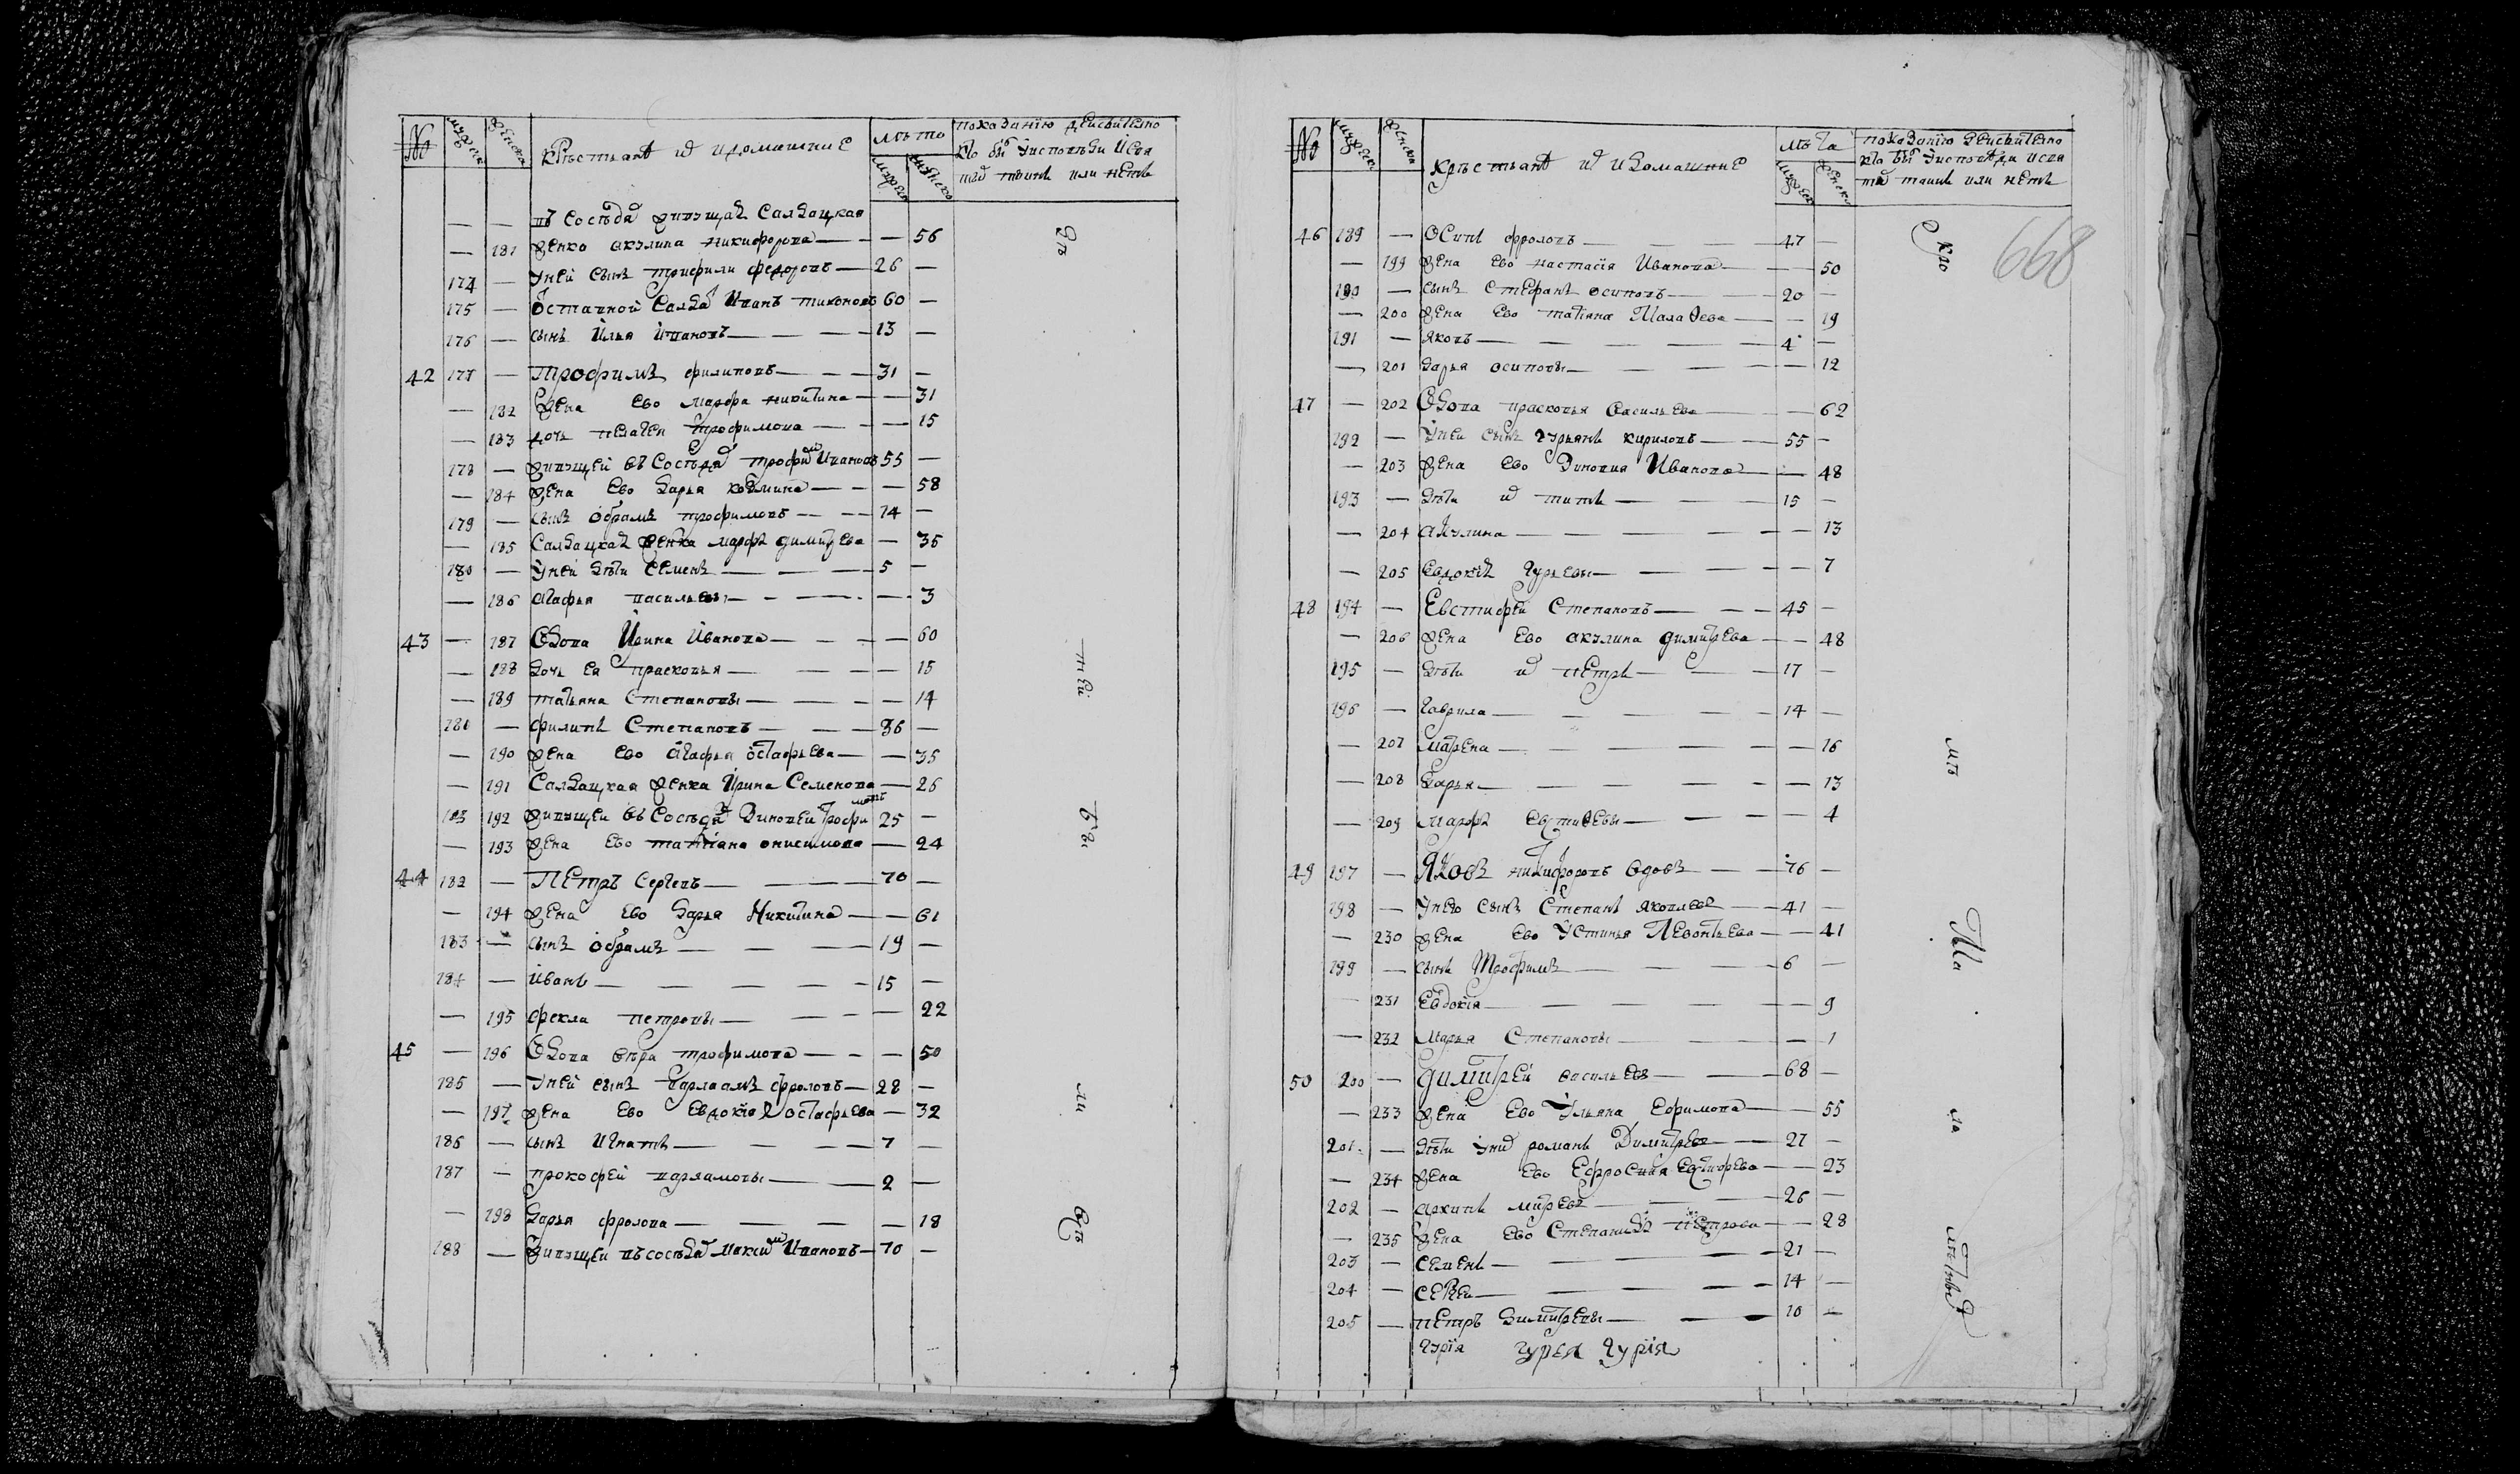 № мужеска женска крестьянъ и ихъ домашние лѣта мужеска женска показанїю действително кто былъ у исповѣди и свя тыхъ таинъ или нетъ
въ соседахъ живущая салдацкая
— 181 женка акулина никифорова — — 56
174 — у ней сынъ трифили федоровъ — 26 —
175 — отставной салдатъ Иванъ тихоновъ 60 —
176 — сынъ Илья Ивановъ — 13 —
42 177 — Трофимъ филиповъ — 31 —
— 182 жена ево марфа никитина — — 31
— 183 дочь пелагея трофимова — — 15
178 — живущей въ соседяхъ трофимъ Ивановъ 55 —
— 184 жена ево дарья козмина — — 58
179 — сынъ обрамъ трофимовъ — 14 —
— 185 Салдацкая женка марфа димитрева — 36
180 — у ней дѣти семенъ — 5 —
— 186 агафья васильевы — — 3
43 — 187 вдова Ирина Иванова — — 60
— 188 дочь ея прасковья — — 15
— 189 татьяна Степановы — — 14
181 — филипъ Степановъ — 36 —
— 190 жена ево агафья остафьева — — 35
— 191 Салдацкая женка Ирина Семенова — 26
183 192 живущеи въ соседяхъ Зиновеи Трофимовъ 25 —
— 193 жена ево татиана онисимова — 24
44 182 — Петръ Сергевъ — 70 —
— 194 жена ево дарья Никитина — — 61
183 — сынъ обрамъ — 19 —
184 — иванъ — 15 —
— 195 фекла петровы — — 22
45 — 196 вдова вѣра трофимова — — 50
185 — у ней сынъ варлаамъ фроловъ — 28 —
— 197 жена ево Евдокия остафьева — 32
186 — сынъ игнатъ — 7 —
187 — прокофей варламовы — 2 —
— 198 дарья фролова — — 18
188 — живущеи въ соседахъ Ивановъ — 70 —
№ мужеска женска крестьянъ и ихъ домашние лѣта мужеска женска показанїю действително кто былъ у исповѣди и свя тыхъ таинъ или нетъ
668
46 189 — Осипъ фроловъ — 47 —
— 199 жена ево настасїя Иванова — — 50
190 — сынъ стефанъ осиповъ — 20 —
— 200 жена ево татїяна — — 19
191 — яковъ — 4 —
— 201 дарья осиповы — — 12
47 — 202 вдова прасковья васильева — — 62
192 — у ней сынъ гурьянъ кириловъ — 55 —
— 203 жена ево Зиновия Иванова — — 48
193 — дѣти ихъ титъ — 15 —
— 204 акулина — — 13
— 205 евдокия гурьевы — — 7
48 194 — Евстифей Степановъ — 45 —
— 206 жена ево акулина димитрева — — 48
195 — дѣти ихъ петръ — 17 —
196 — гаврила — 14 —
— 207 матрена — — 16
— 208 дарья — — 13
— 209 марфа евстифевы — — 4
49 197 — Яковъ никифоровъ вдовъ — 76 —
198 — у него сынъ Степанъ яковлевъ — 41 —
— 230 жена ево Устинья Левонтьева — — 41
199 — сынъ Трофимъ — 6 —
— 231 Евдокїя — — 9
— 232 марья Степановы — — 1
50 200 — димитрей васильевъ — 68 —
— 233 жена ево Ульяна Ефимова — — 55
201 — дѣти у нихъ романъ Димитревъ — 27 —
— 234 жена ево Ефросиния Евстифева — — 23
202 — архипъ митревъ — 26 —
— 235 жена ево Степанида петрова — — 28
203 — семенъ — 21 —
204 — сергеи — 14 —
205 — петръ димитревы — 10 —
гурїя гурея гурїя